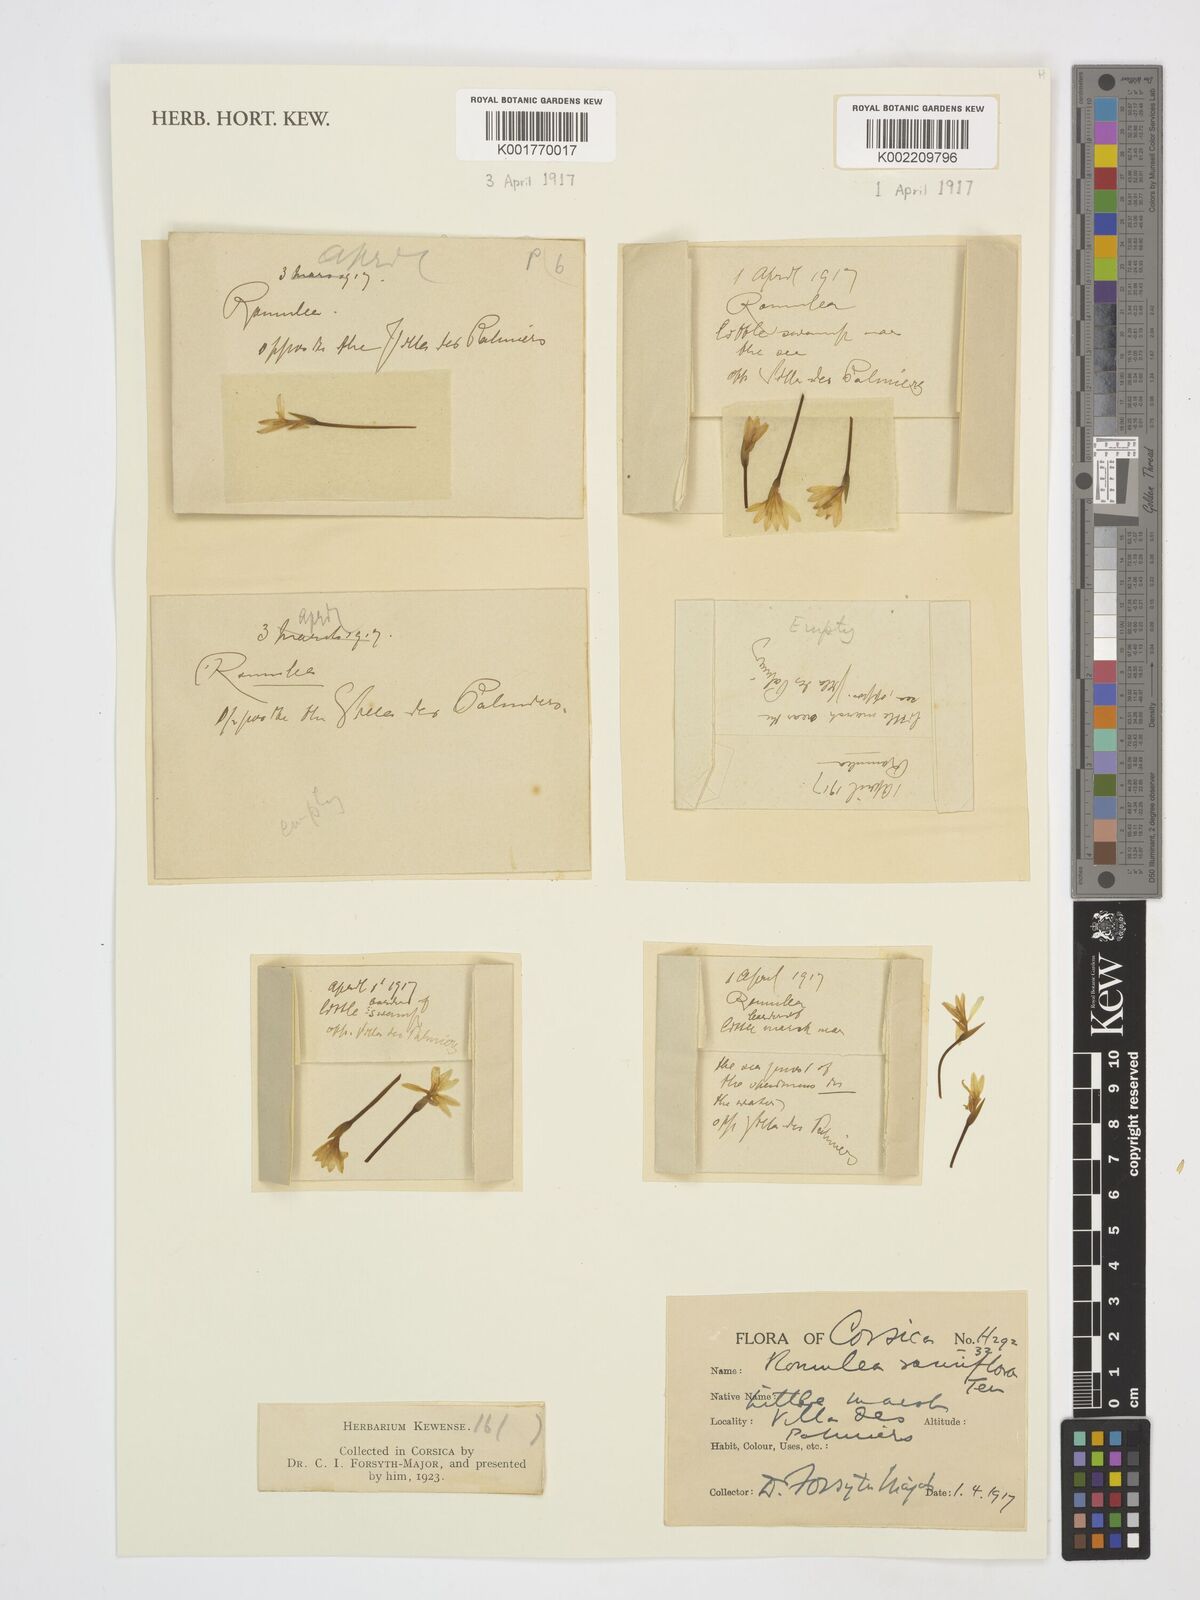 HERB. HORT. KEW.
ROYAL BOTANIC GARDENS KEW
K001770017
3 April 1917
ROYAL BOTANIC GARDENS KEW
K002209796
1 April 1917
April
P 6
3 Mars 1917.
Romulea.
opposite the Villa des Palmiers
1 April 1917
Romulea
little swamp near
the sea
opp. Villa des Palmiers
April
3 March 1917.
Romulea
opposite the Villa des Palmiers.
empty
Empty
1 April 1917.
Romulea
little marsh near the
sea, oppos. Villa des Palmiers
April 1st 1917
little swamp
opp. Villa des Palmiers
1 April 1917
Romulea
little marsh near
the sea most of
the specimens in
the water
opp. Villa des Palmiers
FLORA OF Corsica No. H292
-32
Name: Romulea ramiflora
Ten
Native Name:
Little marsh
Locality: Villa des Altitude:
Palmiers
Habit, Colour, Uses, etc.:
Collector: Dr. Forsyth Major Date: 1.4.1917
HERBARIUM KEWENSE. 16( )
Collected in CORSICA by
DR. C. I. FORSYTH-MAJOR, and presented
by him, 1923.
Colors by Munsell Color Services Lab
Golden Thread
centimeters
inches
Density
D50 Illuminant, 2 degree observer
Royal Botanic Gardens
Kew
copyright reserved
0 1 2 3 4 5 6 7 8 9 10
cm